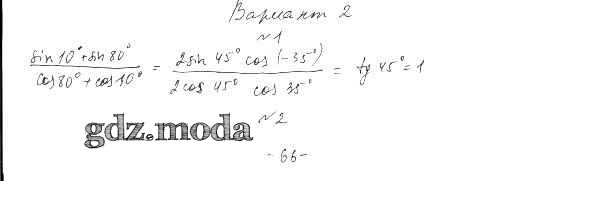 Вариант 2
№1
(sin 10° + sin 80°) / (cos 80° + cos 10°) = (2 sin 45° cos (-35°)) / (2 cos 45° cos 35°) = tg 45° = 1
№2
gdz.moda
- 66 -